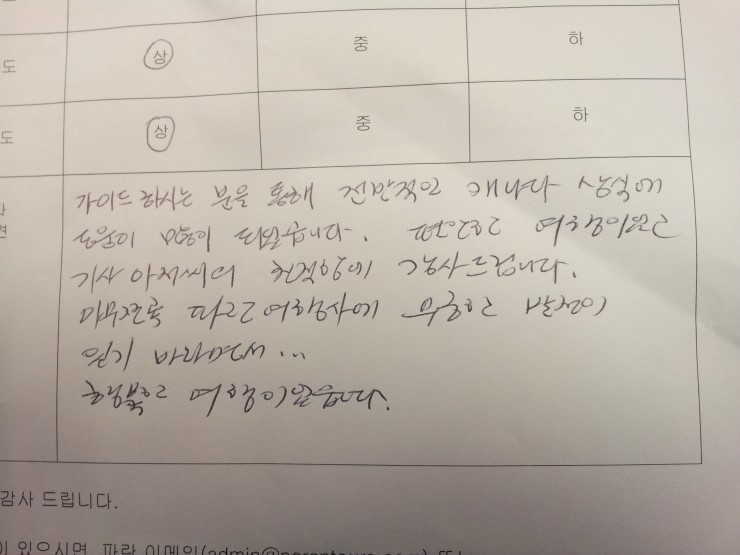 도 상 중 하
도 상 중 하
가이드 하시는 분을 통해 전반적인 캐나다 상식에
도움이 많이 되었습니다. 편안한 여행이었고
기사 아저씨의 친절함에 감사드립니다.
아무쪼록 파란여행사에 무궁한 발전이
있기 바라면서...
행복한 여행이었습니다.
감사 드립니다.
이 있으시면, 파란 이메일(admin@parantours.com) 또는